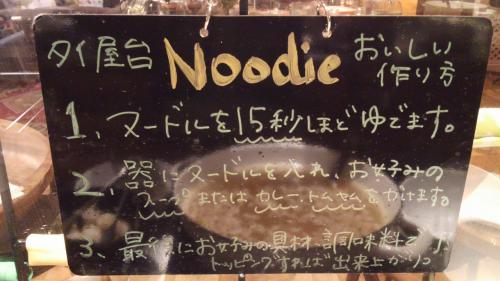 タイ屋台 Noodle おいしい作り方
1、ヌードルを15秒ほどゆでます。
2、器にヌードルを入れ、お好みの
スープまたはカレー、トムヤムをかけます。
3、最後にお好みの具材、調味料で
トッピングすれば出来上がり。